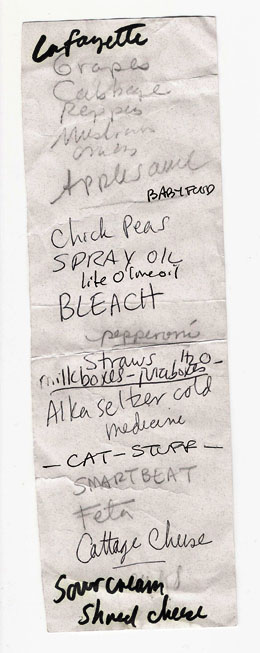 Lafayette
Grapes
Cabbage
Pepper
Mushroom
onions
Applesauce
BABY FOOD
Chick Peas
SPRAY OIL
lite Olive oil
BLEACH
pepperoni
Straws H2O-
milkboxes - juiceboxes -
Alka Seltzer cold
medicine
- CAT - STUFF -
SMARTBEAT
Feta
Cottage Cheese
Sour cream
Shred cheese